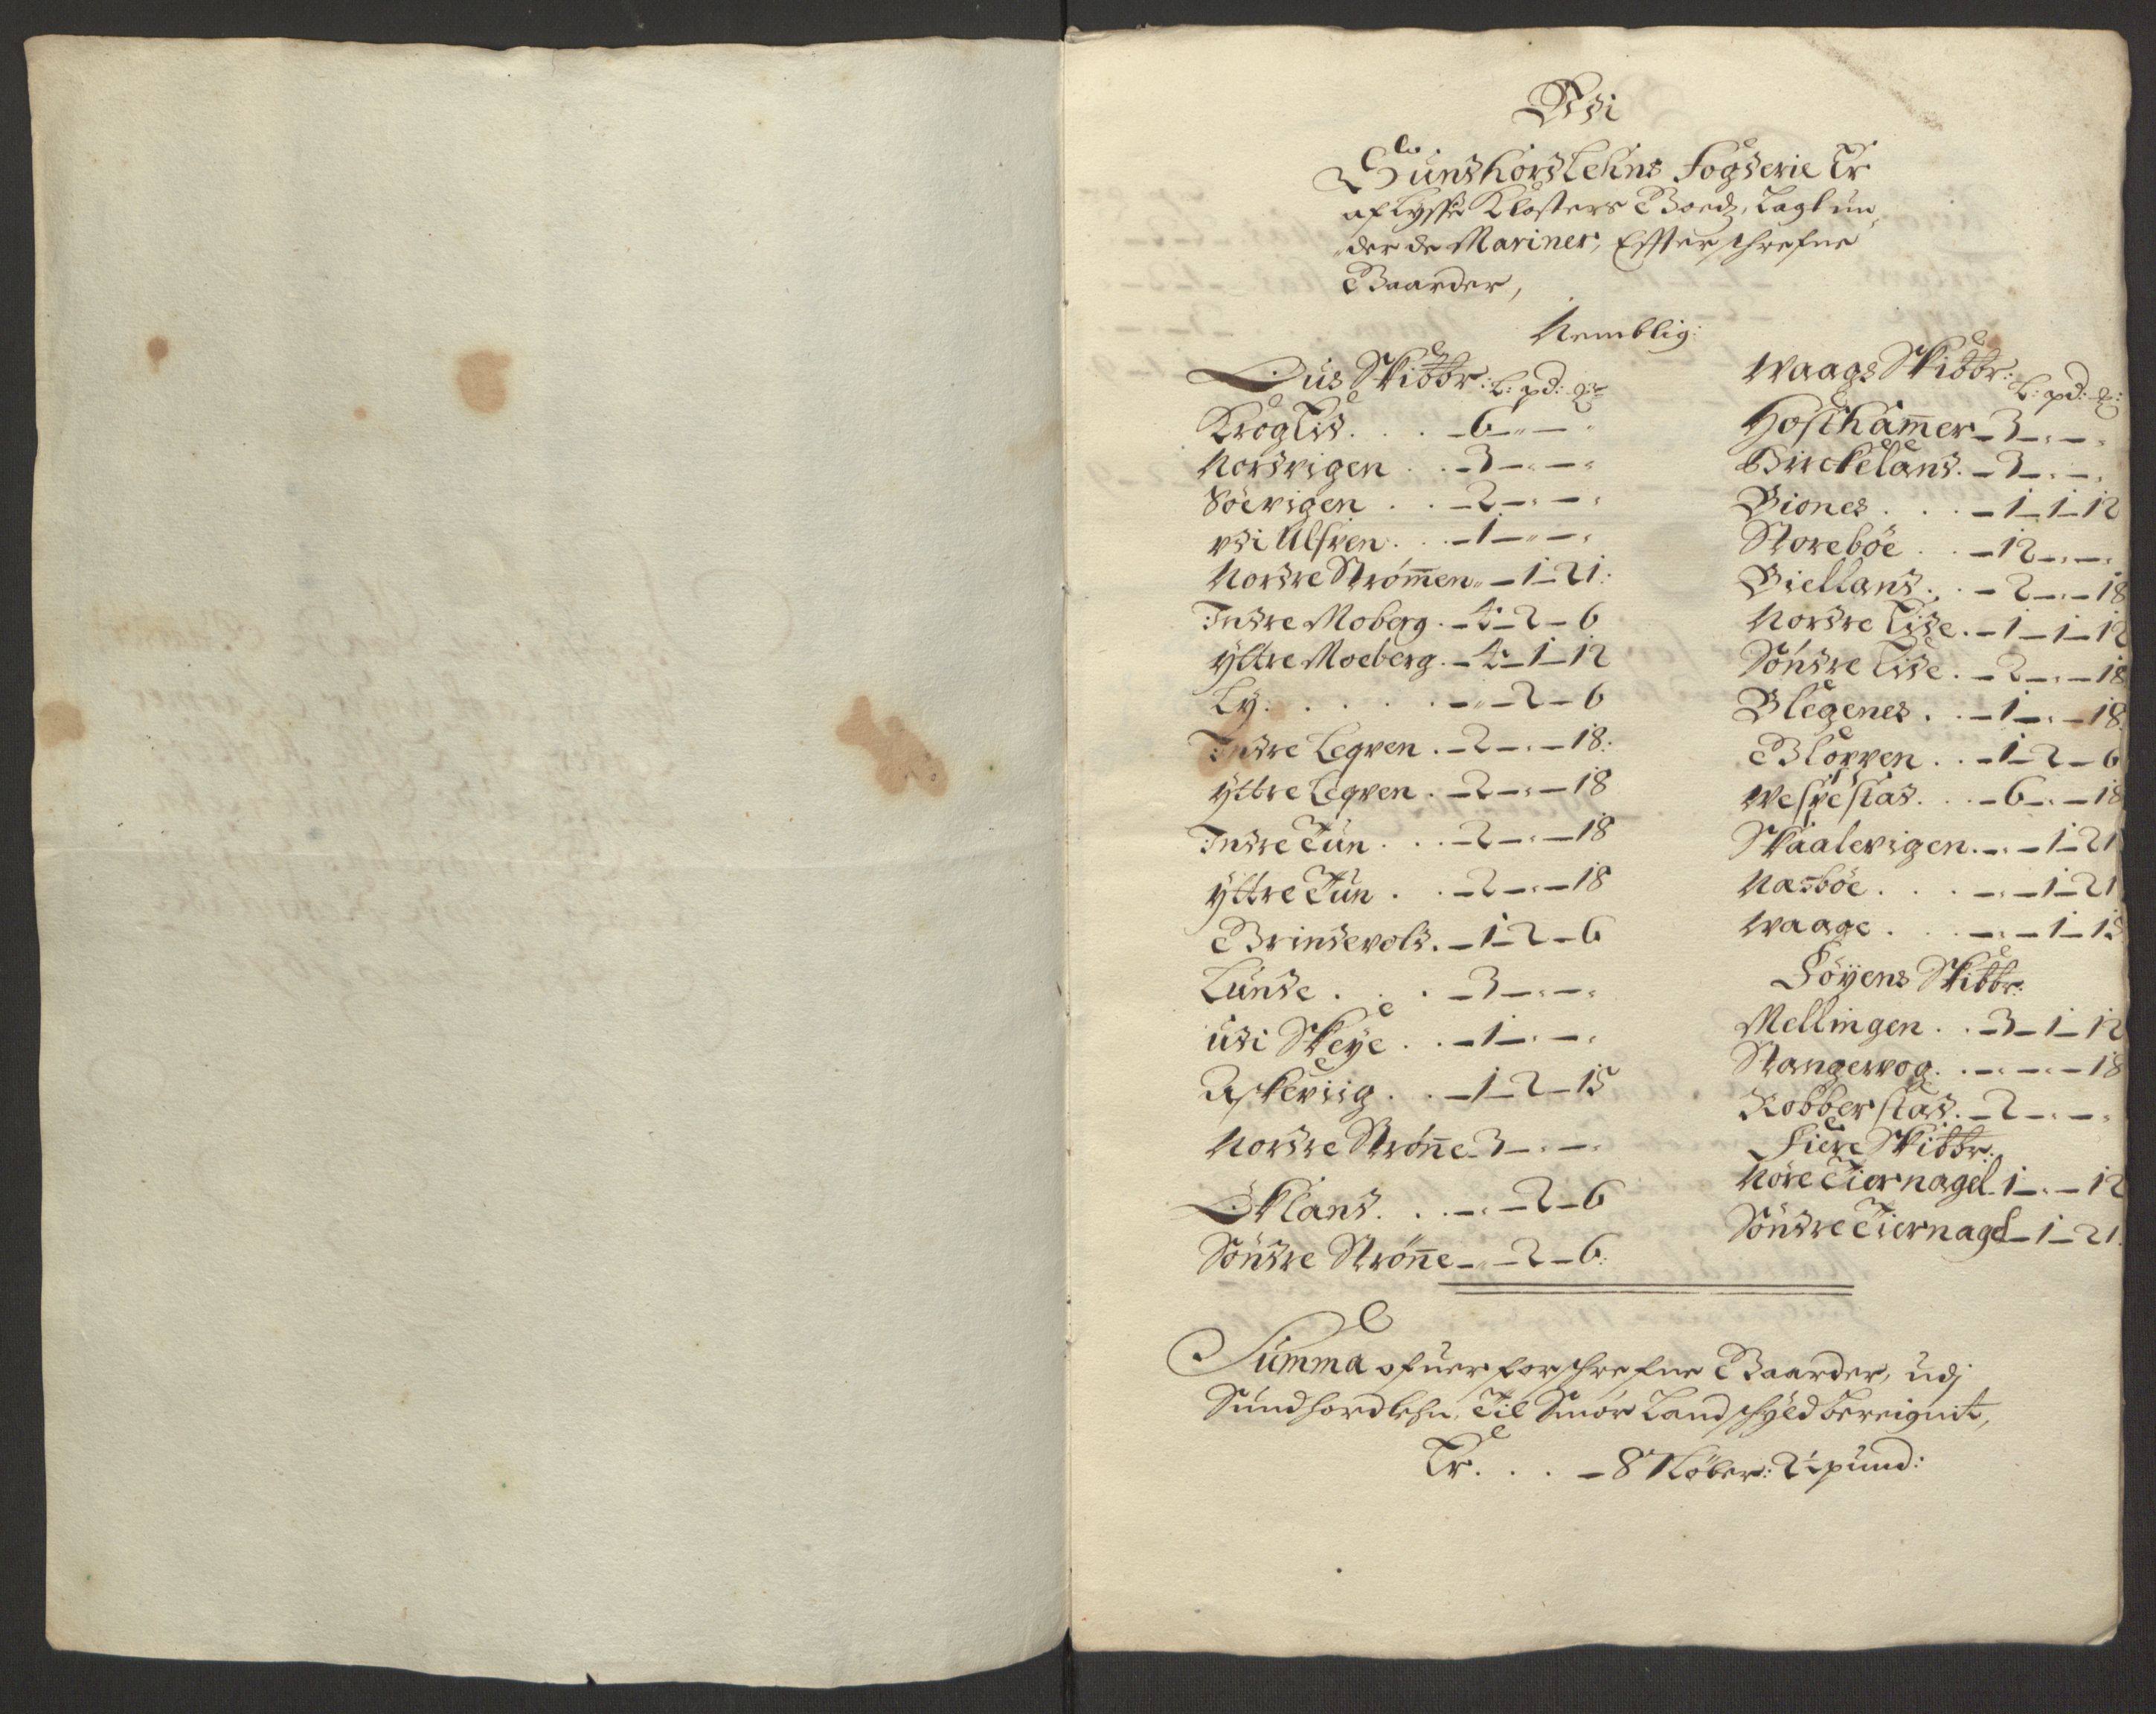 Udi
Sundhordlehns Fogderie Er
af Lysse Klosters Goedz, Lagt un„
„der de Mariner, Effterschrefne
Gaarder,
Nemblig:
Ous Skibbr: L: pd: 
Krogtid. . . 6 — " — "
Nordvigen . . 3 — " — "
Söevigen . . 2 — " — "
vdi Ulfven. . . 1 — " — "
Nordre Strømen " — 1 — 21:
Indre Moberg . — 4 — 2 — 6
yttre Moeberg . — 4 — 1 — 12
Ly. . . . . — " — 2 — 6
Indre Leqven . — 2 — " — 18:
yttre Leqven . — 2 — " — 18
Indre Tün . . . — 2 — " — 18
yttre Tün . . — 2 — " — 18
Brindevold. — 1 — 2 — 6
Lunde . . . — 3 — " — "
udi Skeye . . — 1 — " — "
Askeviig . . — 1 — 2 — 15
Nordre Strøne — 3 — " — "
Økland. . . — " — 2 — 6
Söndre Strøne — " — 2 — 6:
Waags Skibbr: L: pd: 
Hosthamer — 3 — " — "
Birckeland. — 3 — " — "
Biones . . . — 1 — 1 — 12
Storeböe . . — 12 — " — "
Bielland. . — 2 — " — 18
Nordre Lide. — 1 — 1 — 12
Söndre Lide. — 2 — " — 18
Blegenes . . — 1 — " — 18
Blorven . . — 1 — 2 — 6
Wespestad. . . — 6 — " — 18
Skaalevigen. — " — 1 — 21
Nasböe. . . — " — 1 — 21
Waage . . . — " — 1 — 15
Föyens Skibbr:
Mellingen . . 3 — 1 — 12
Stangevog. . — " — " — 18
Robberstad. — 2 — " — "
Fiere Skibbr:
Nöre Tiernagel 1 — " — 12
Söndre Tiernagel — 1 — 21.
Summa ofuer forschrefne Gaarder, udj
Sundhordlehn, Til Smör Landschyld bereignit,
Er. . . — 87 Löber: 2½ pund: